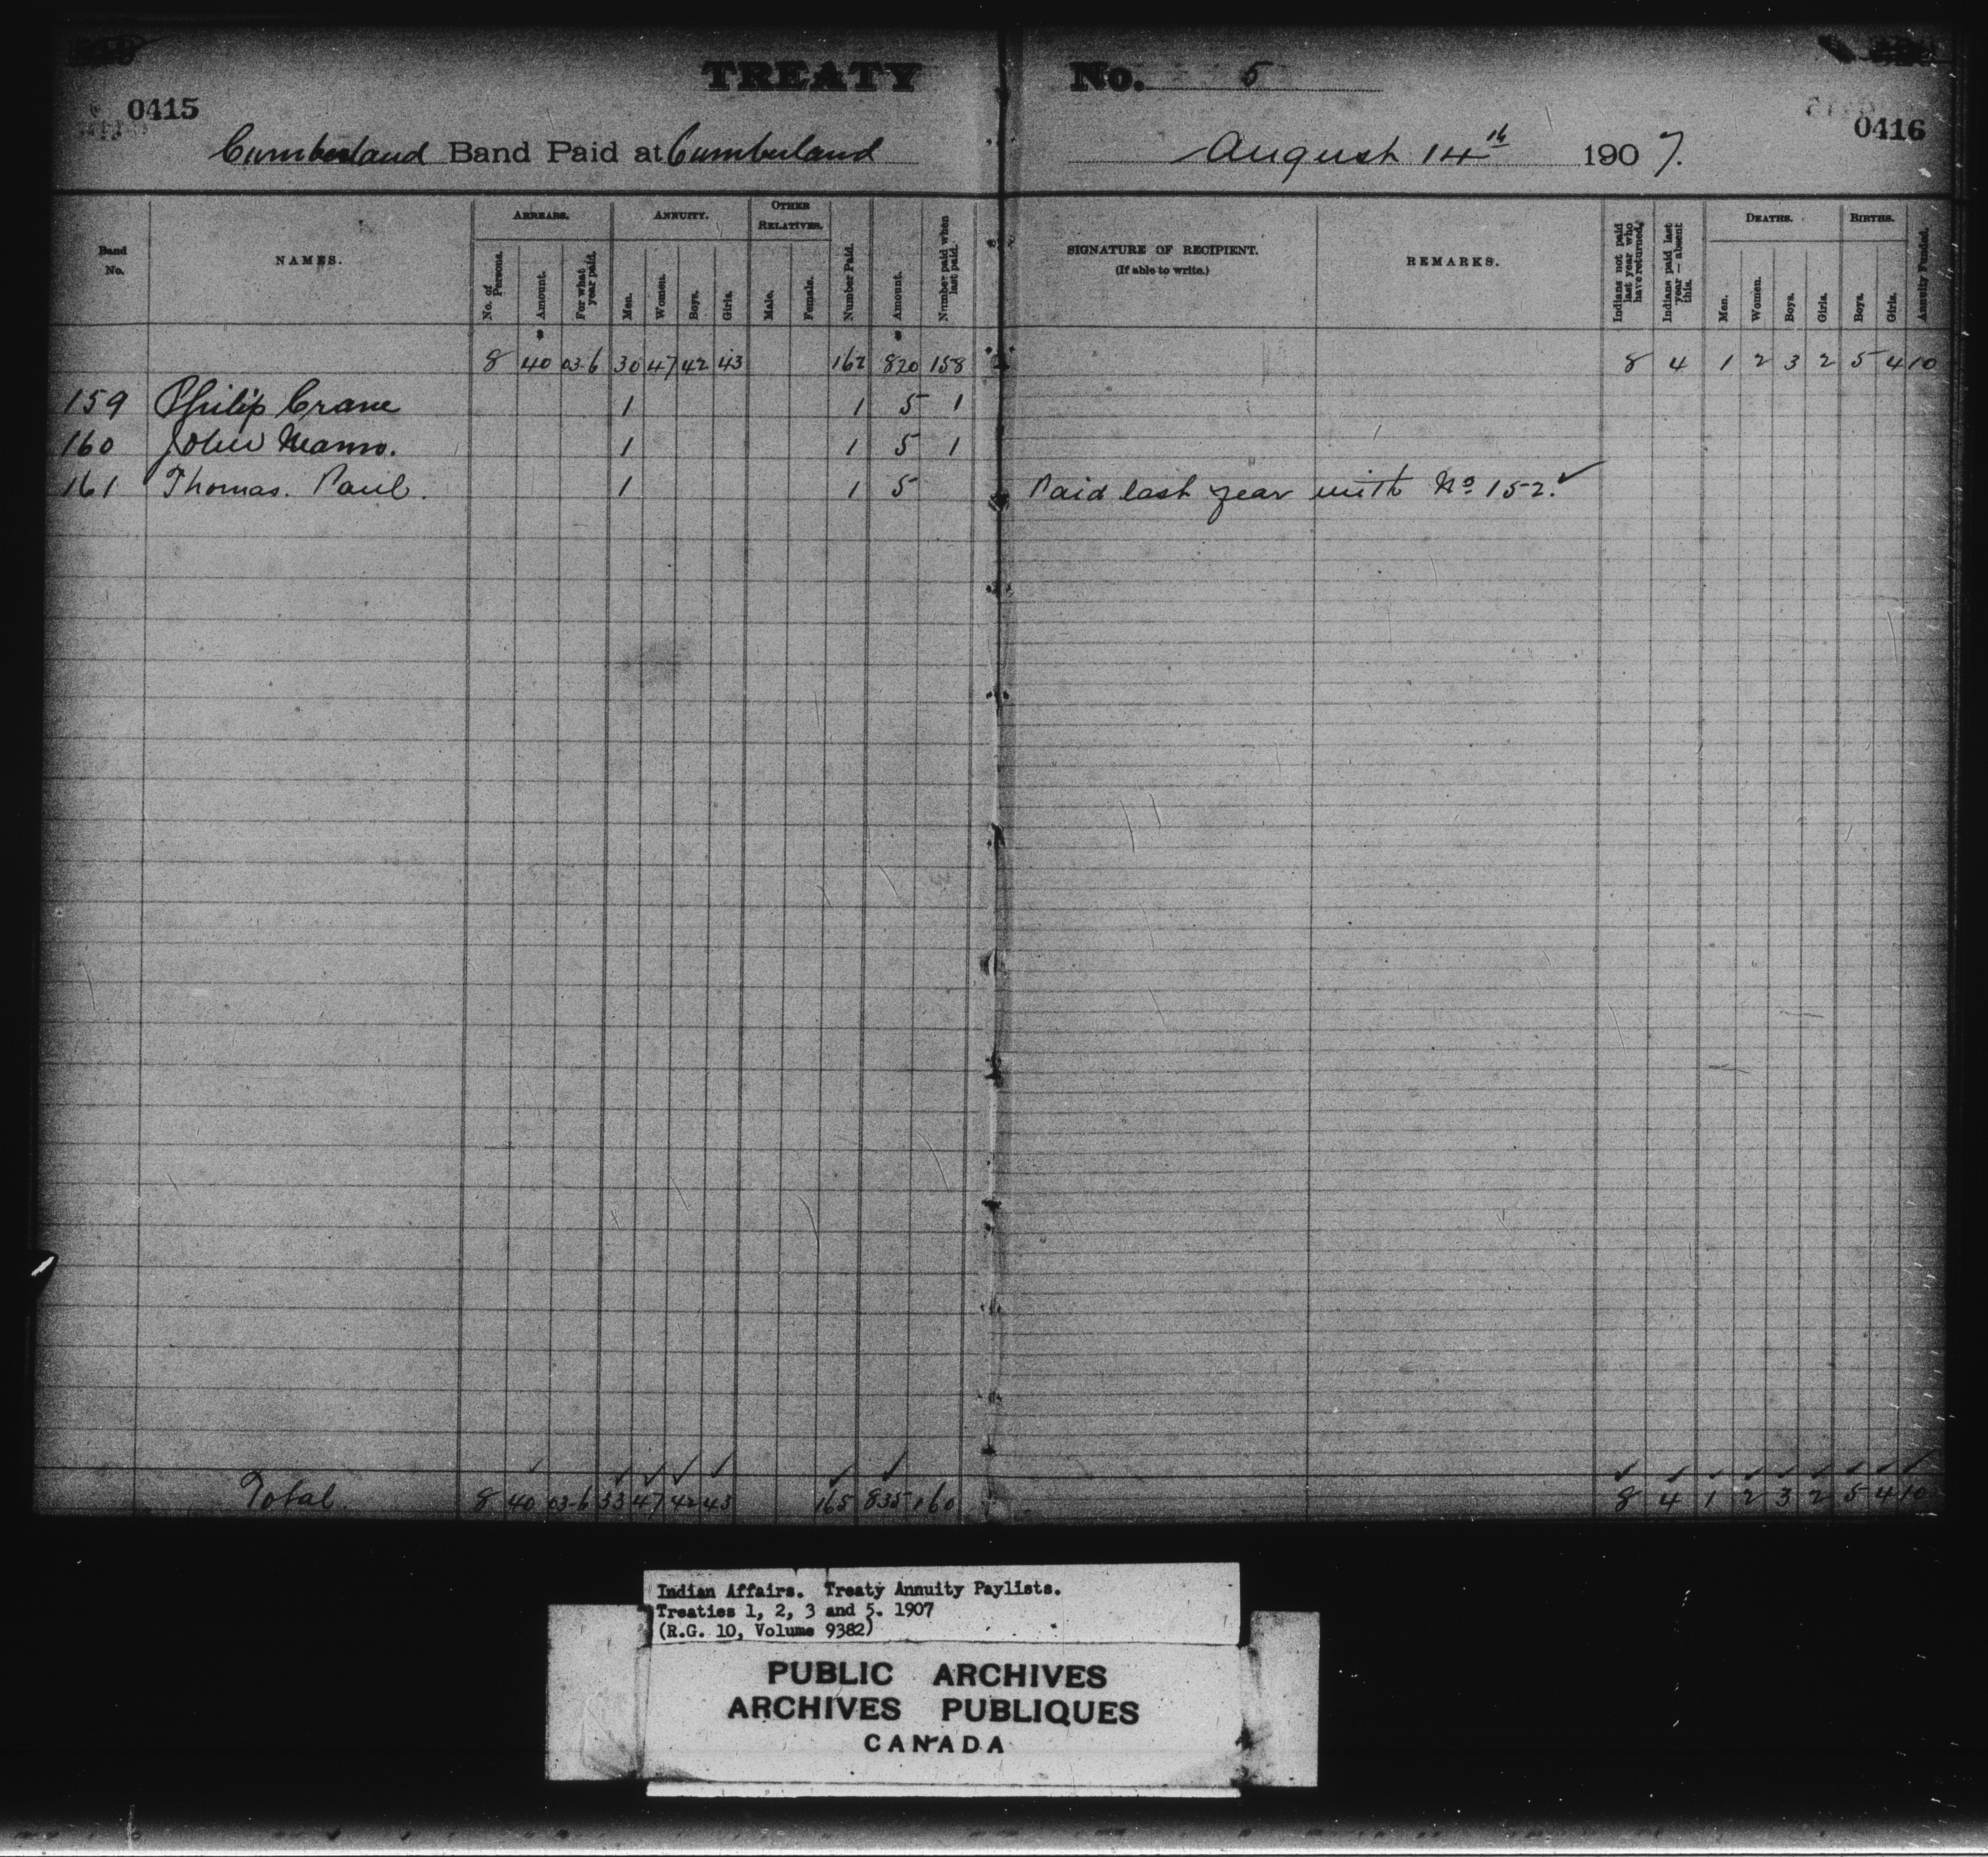 TREATY No. 5
0415
0416
Cumberland Band Paid at Cumberland August 14th 1907.
Band No. NAMES. ARREARS. ANNUITY. OTHER RELATIVES. Number Paid. Amount. Number paid when last paid. SIGNATURE OF RECIPIENT. (If able to write.) REMARKS. Indians not paid last year who have returned. Indians paid last year — absent this. DEATHS. BIRTHS. Annuity Funded.
No. of Persons. Amount. For what year paid. Men. Women. Boys. Girls. Male. Female. Men. Women. Boys. Girls. Boys. Girls.
8 40 03-6 30 47 42 43 162 820 158 8 4 1 2 3 2 5 4 10
159 Philip Crane 1 1 5 1
160 John 1 1 5 1
161 Thomas. Paul. 1 1 5 Paid last year with No 152. ✓
Total 8 40 03-6 33 47 42 43 165 835 160 8 4 1 2 3 2 5 4 10
Indian Affairs. Treaty Annuity Paylists.
Treaties 1, 2, 3 and 5. 1907
(R.G. 10, Volume 9382)
PUBLIC ARCHIVES
ARCHIVES PUBLIQUES
CANADA